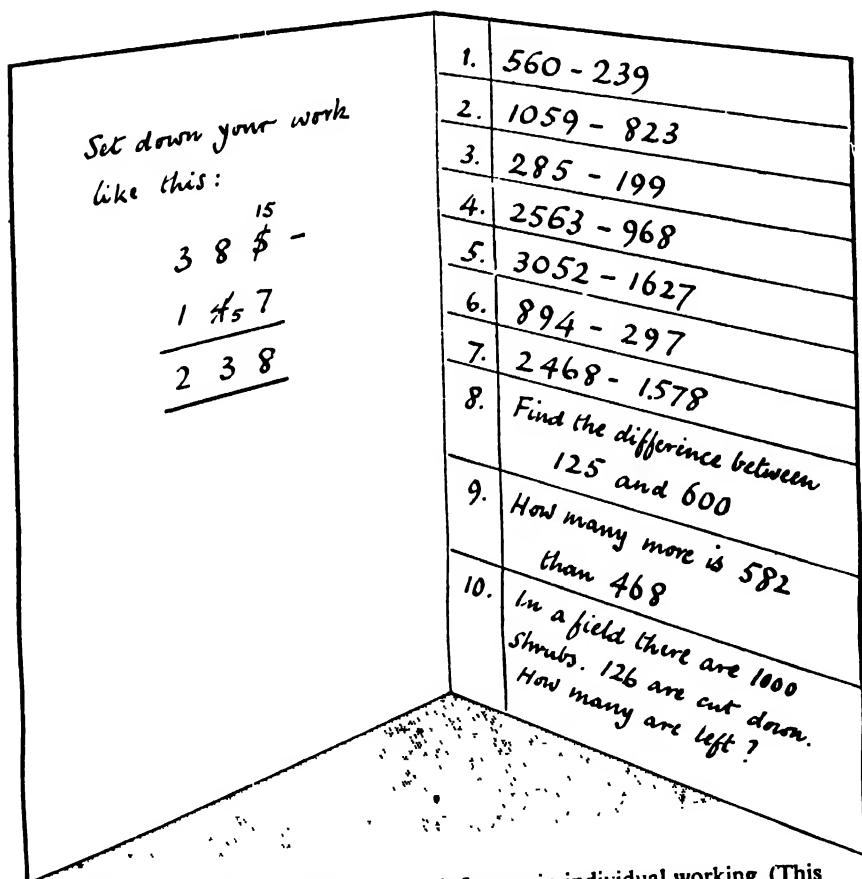 Set down your work
like this:
15
3 8 5 -
1 4 5 7
2 3 8
1. 560 - 239
2. 1059 - 823
3. 285 - 199
4. 2563 - 968
5. 3052 - 1627
6. 894 - 297
7. 2468 - 1578
8. Find the difference between
125 and 600
9. How many more is 582
than 468
10. In a field there are 1000
shrubs. 126 are cut down.
How many are left?
individual working. (This